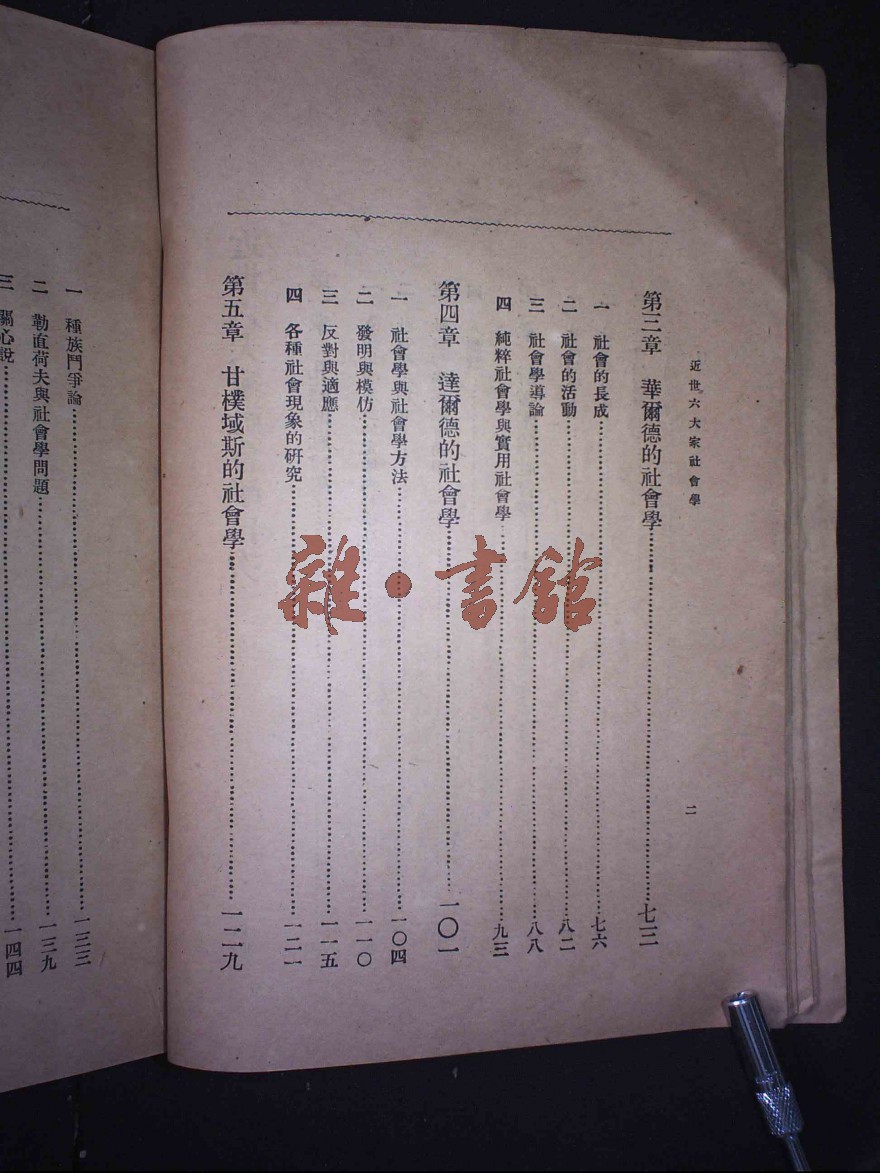 近世六大家社會學
二
第三章 華爾德的社會學……七三
一 社會的長成……七六
二 社會的活動……八二
三 社會學導論……八八
四 純粹社會學與實用社會學……九三
第四章 達爾德的社會學……一〇一
一 社會學與社會學方法……一〇四
二 發明與模仿……一一〇
三 反對與適應……一一五
四 各種社會現象的研究……一二一
第五章 甘樸域斯的社會學……一二九
一 種族鬥爭論……一三三
二 勒直荷夫與社會學問題……一三九
三 關心說……一四四
雜·書館